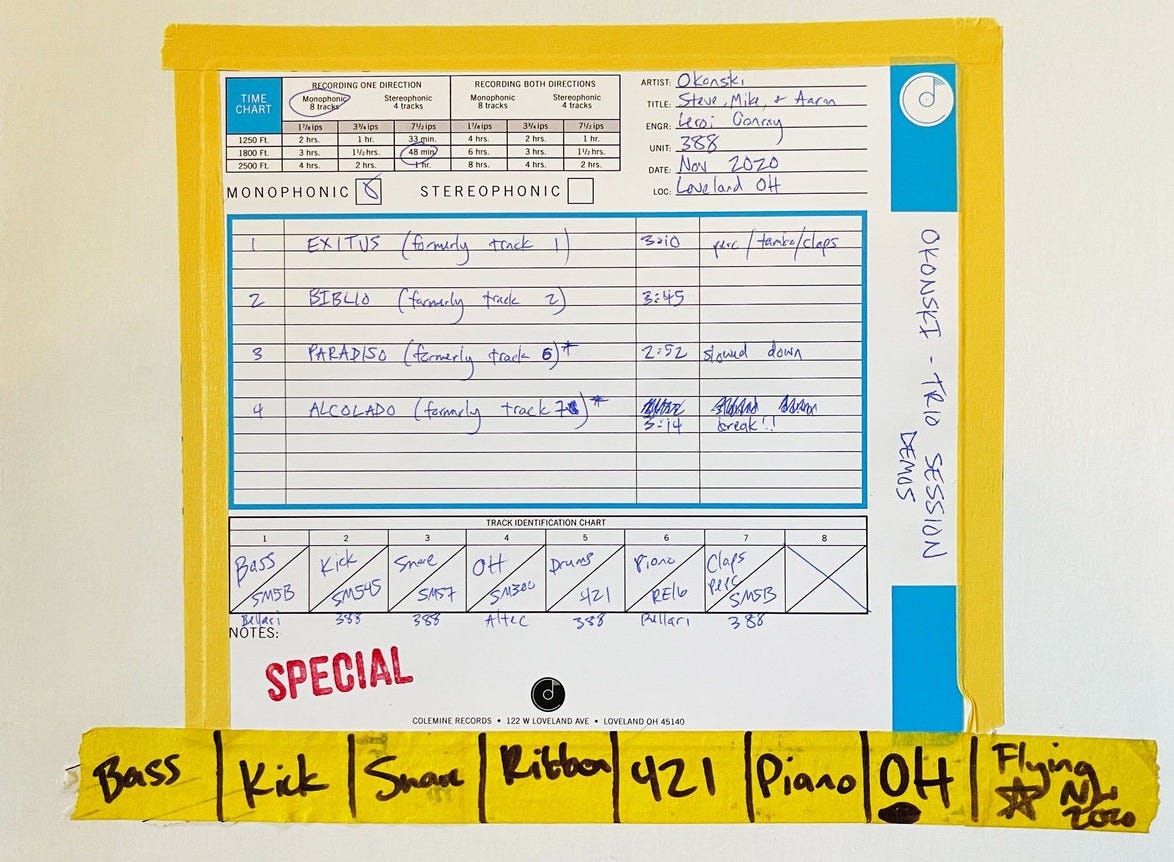 TIME CHART
RECORDING ONE DIRECTION
RECORDING BOTH DIRECTIONS
Monophonic 8 tracks
Stereophonic 4 tracks
Monophonic 8 tracks
Stereophonic 4 tracks
1⅞ ips 3¾ ips 7½ ips 1⅞ ips 3¾ ips 7½ ips
1250 Ft. 2 hrs. 1 hr. 33 min. 4 hrs. 2 hrs. 1 hr.
1800 Ft. 3 hrs. 1½ hrs. 48 min. 6 hrs. 3 hrs. 1½ hrs.
2500 Ft. 4 hrs. 2 hrs. 1 hr. 8 hrs. 4 hrs. 2 hrs.
MONOPHONIC STEREOPHONIC
ARTIST: Okonski
TITLE: Steve, Mike, + Aaron
ENGR: Leroi Conroy
UNIT: 388
DATE: Nov 2020
LOC: Loveland OH
1 EXITUS (formerly track 1) 3:10 perc/tambo/claps
2 BIBLIO (formerly track 2) 3:45
3 PARADISO (formerly track 6)* 2:52 slowed down
4 ALCOLADO (formerly track 7)*
3:14 break!!
OKONSKI - TRIO SESSION
DEMOS
TRACK IDENTIFICATION CHART
1 2 3 4 5 6 7 8
Bass Kick Snare OH Drums Piano Claps
Perc
SM5B SM545 SM57 SM300 421 RE16 SM5B
Bellari 388 388 Altec 388 Bellari 388
NOTES:
SPECIAL
COLEMINE RECORDS • 122 W LOVELAND AVE • LOVELAND OH 45140
Bass Kick Snare Ribbon 421 Piano OH Flying
2020